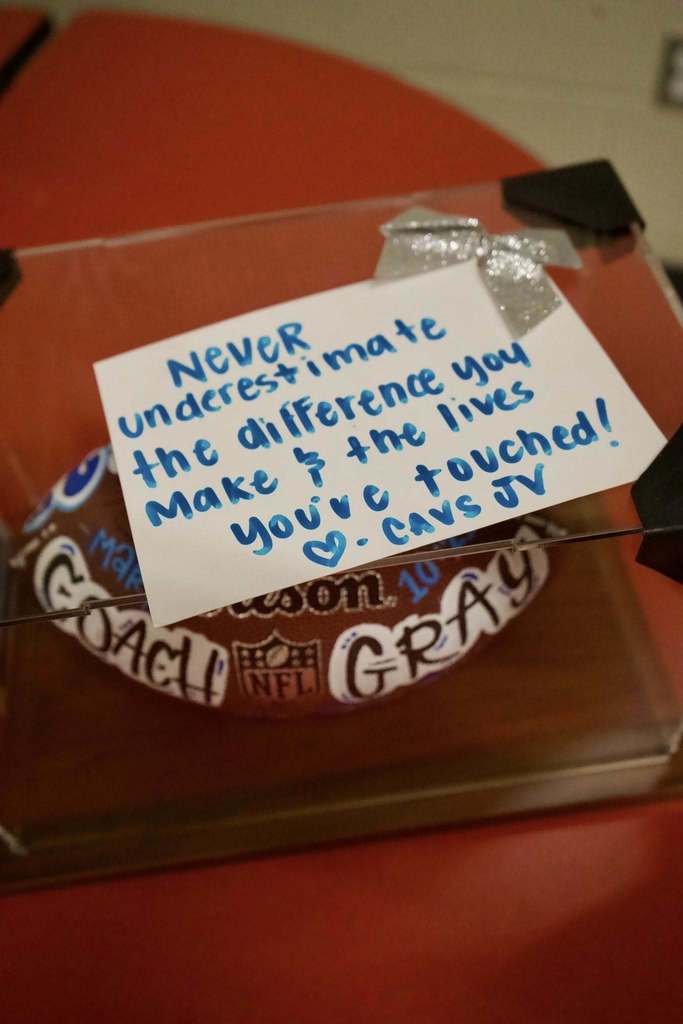 NeveR
underestimate
the difference you
make & the lives
you've touched!
♡ - CAVS JV
COACH GRAY
NFL
10